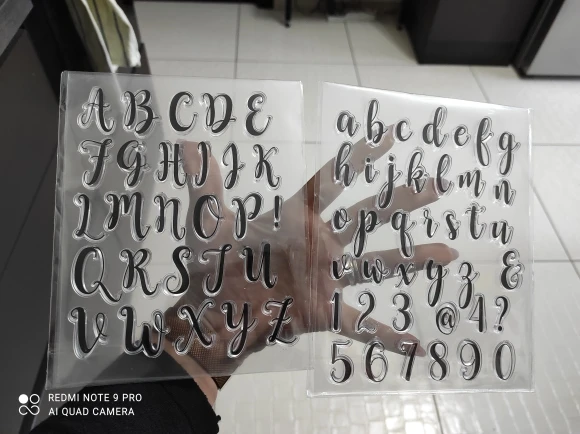 A B C D E
F G H I J K
L M N O P !
Q R S T U
V W X Y Z
a b c d e f g
h i j k l m n
o p q r s t u
v w x y z &
1 2 3 @ 4 ?
5 6 7 8 9 0
REDMI NOTE 9 PRO
AI QUAD CAMERA